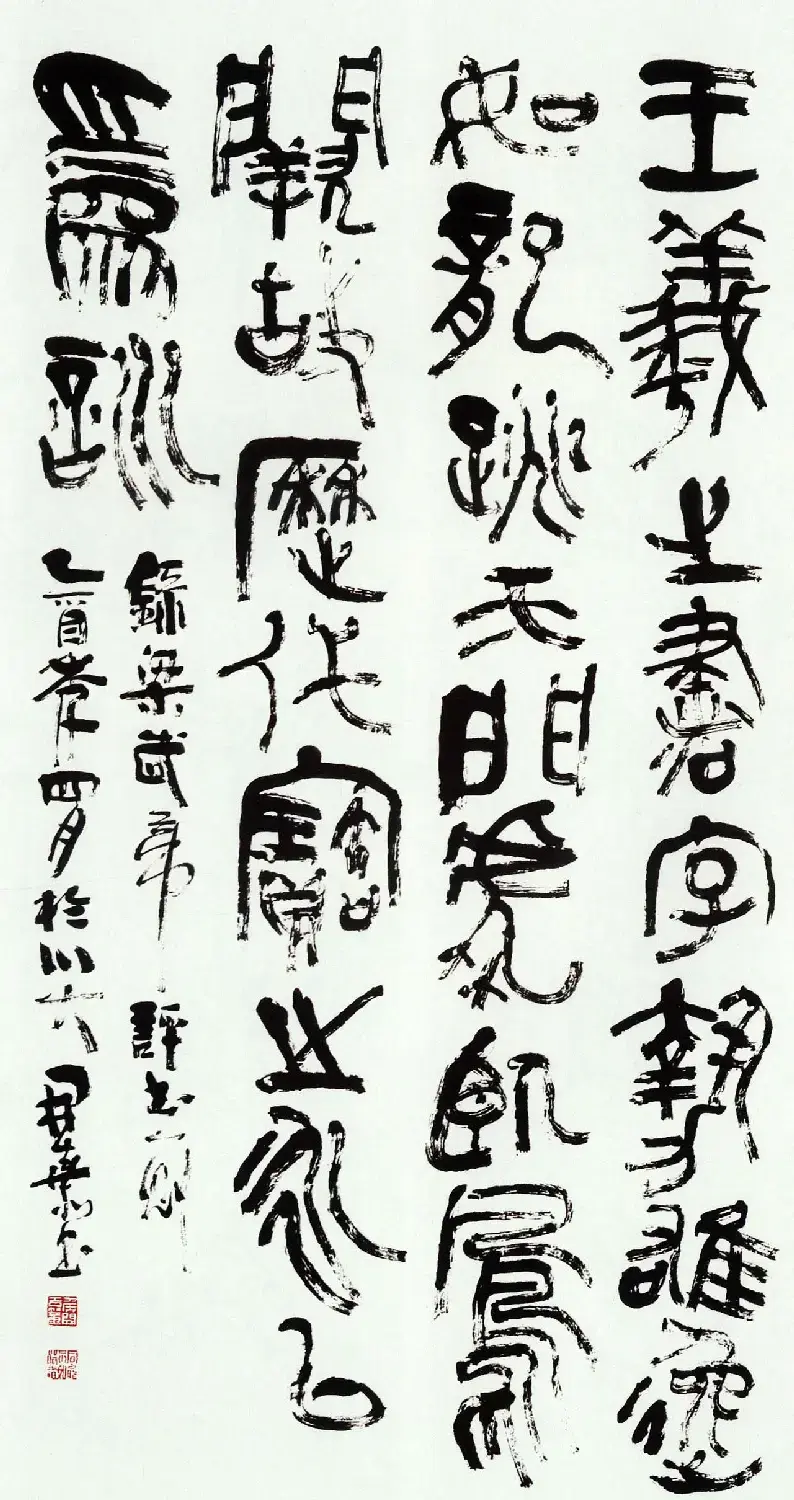 王羲之書字勢雄逸
如龍跳天門虎臥鳳
闕故歷代寶之永以
爲訓
錄梁武帝評書一則
乙酉春四月於川大開嘉書